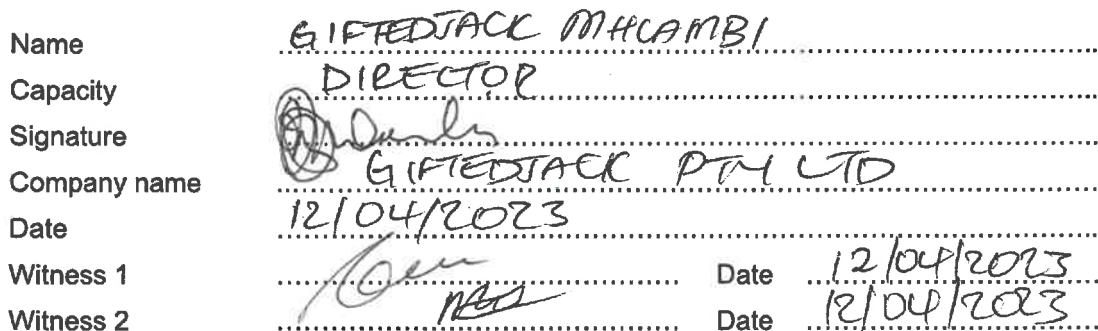 Name GIFTEDJACK MHLAMBI
Capacity DIRECTOR
Signature
Company name GIFTEDJACK PTY LTD
Date 12/04/2023
Witness 1 Date 12/04/2023
Witness 2 Date 12/04/2023